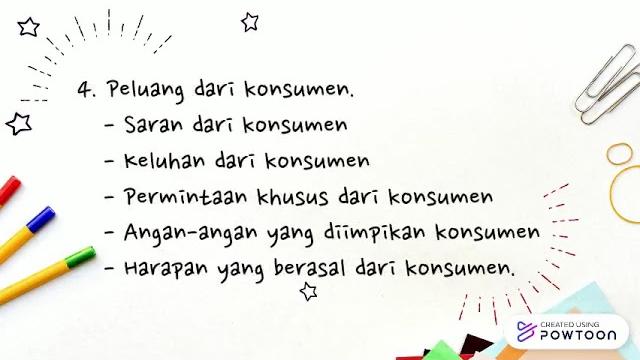 4. Peluang dari konsumen.
- Saran dari konsumen
- Keluhan dari konsumen
- Permintaan khusus dari konsumen
- Angan-angan yang diimpikan konsumen
- Harapan yang berasal dari konsumen.
CREATED USING
POWTOON